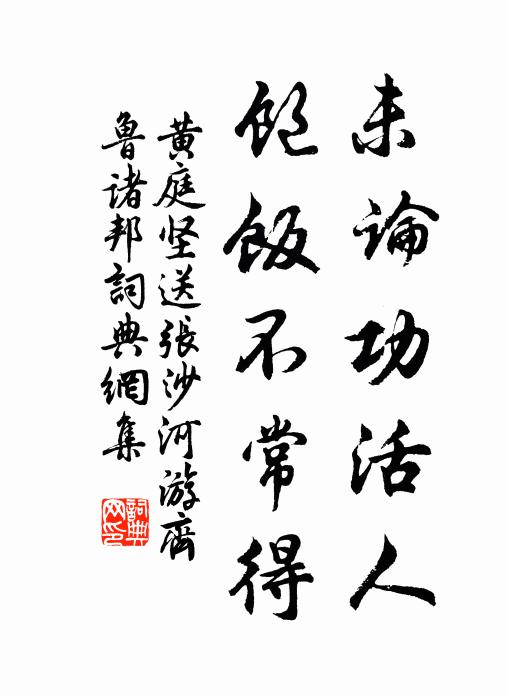 未論功活人
飽飯不常得
黄庭坚送張沙河游齊
魯诸邦詞典網集
詞典
网印